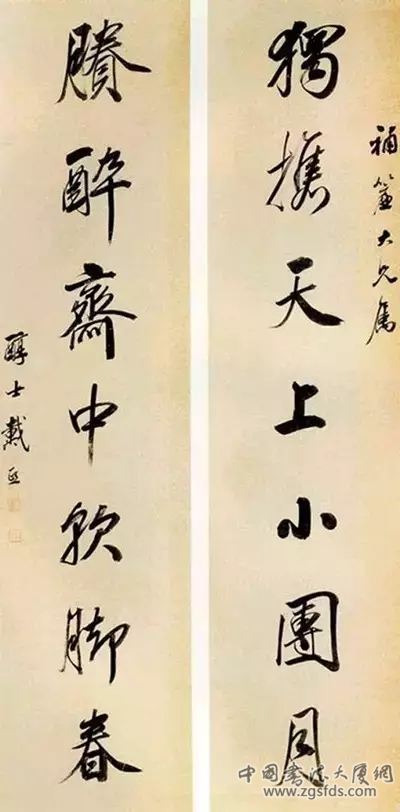 大兄屬
獨攜天上小團月
賸醉齋中軟脚春
醇士戴熙
中國書法大厦網
www.zgsfds.com